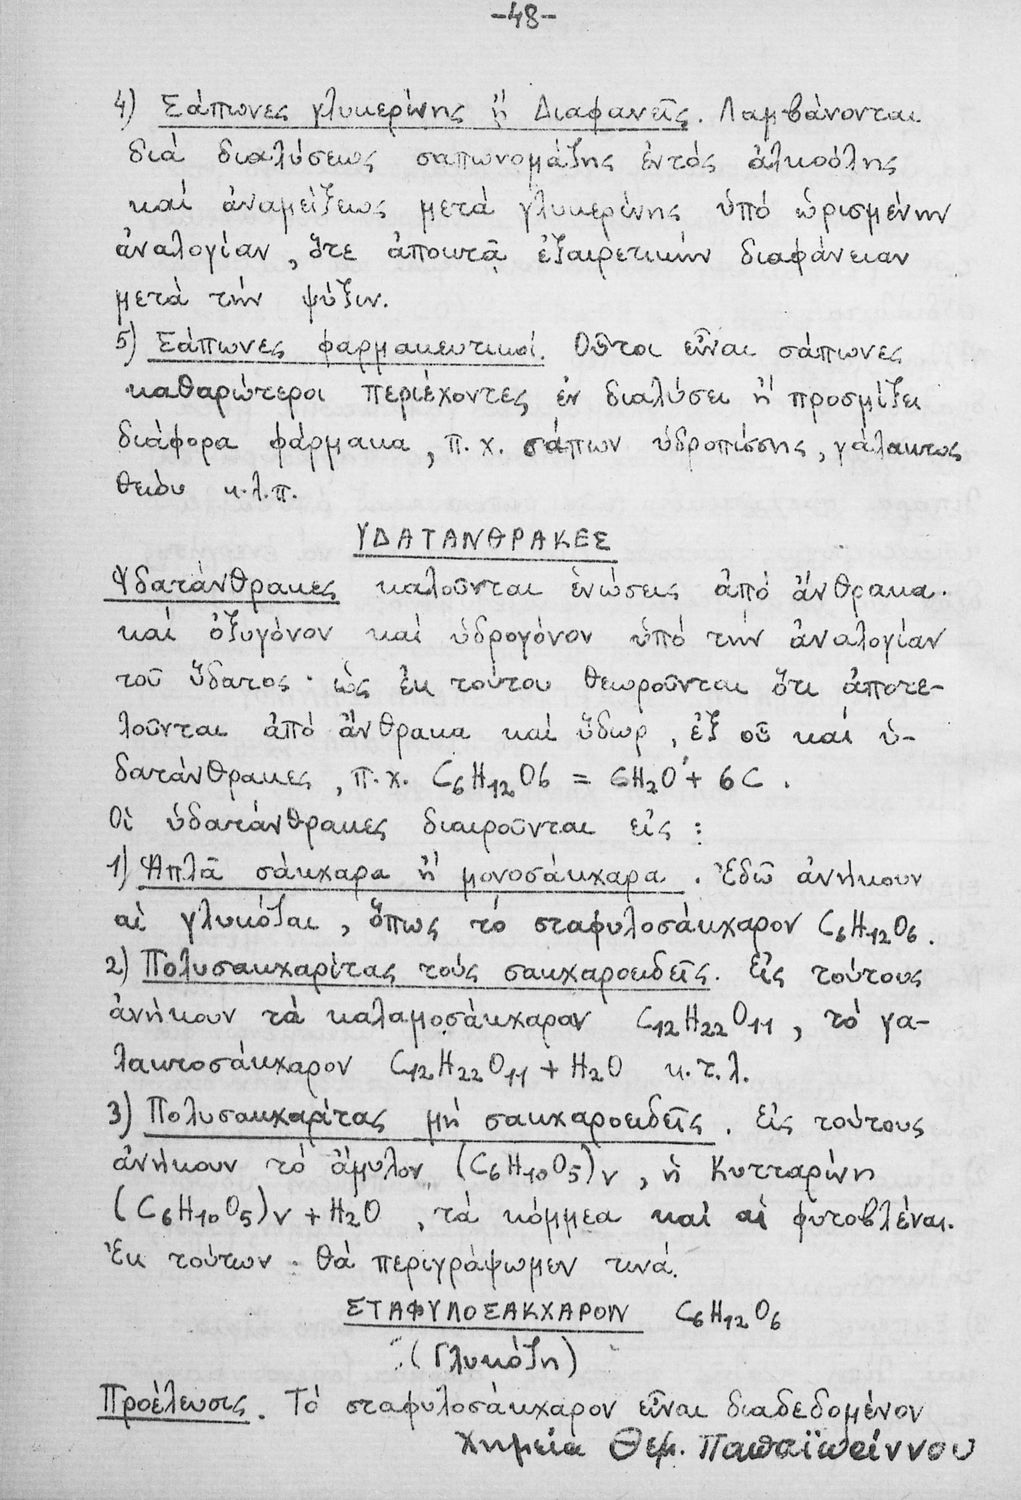 -48-
4) Σάπωνες γλυκερίνης ἤ Διαφανεῖς. Λαμβάνονται
διά διαλύσεως σαπωνομάζης ἐντός ἀλκοόλης
καί ἀναμείξεως μετά γλυκερίνης ὑπό ὡρισμένην
ἀναλογίαν, ὅτε ἀποκτᾷ ἐξαιρετικήν διαφάνειαν
μετά τήν ψύξιν.
5) Σάπωνες φαρμακευτικοί. Οὗτοι εἶναι σάπωνες
καθαρώτεροι περιέχοντες ἐν διαλύσει ἤ προσμίξει
διάφορα φάρμακα, π.χ. σάπων ὑδροπίσσης, γάλακτος
θείου κ.λ.π.
ΥΔΑΤΑΝΘΡΑΚΕΣ
Ὑδατάνθρακες καλοῦνται ἑνώσεις ἀπό ἄνθρακα
καί ὀξυγόνον καί ὑδρογόνον ὑπό τήν ἀναλογίαν
τοῦ ὕδατος· ὡς ἐκ τούτου θεωροῦνται ὅτι ἀποτε-
λοῦνται ἀπό ἄνθρακα καί ὕδωρ, ἐξ οὗ καί ὑ-
δατάνθρακες, π.χ. C₆H₁₂O6 = 6H₂O + 6C.
Οἱ ὑδατάνθρακες διαιροῦνται εἰς :
1) Ἁπλᾶ σάκχαρα ἤ μονοσάκχαρα. Ἐδῶ ἀνήκουν
αἱ γλυκόζαι, ὅπως τό σταφυλοσάκχαρον C₆H₁₂O₆.
2) Πολυσακχαρίτας τούς σακχαροειδεῖς. Εἰς τούτους
ἀνήκουν τά καλαμοσάκχαρον C₁₂H₂₂O₁₁, τό γα-
λακτοσάκχαρον C₁₂H₂₂O₁₁ + H₂O κ.τ.λ.
3) Πολυσακχαρίτας μή σακχαροειδεῖς. Εἰς τούτους
ἀνήκουν τό ἄμυλον (C₆H₁₀O₅)ν, ἡ Κυτταρίνη
(C₆H₁₀O₅)ν + H₂O, τά κόμμεα καί αἱ φυτοβλέναι.
Ἐκ τούτων θά περιγράψωμεν τινά.
ΣΤΑΦΥΛΟΣΑΚΧΑΡΟΝ C₆H₁₂O₆
(Γλυκόζη)
Προέλευσις. Τό σταφυλοσάκχαρον εἶναι διαδεδομένον
Χημεία Θεμ. Παπαϊωάννου